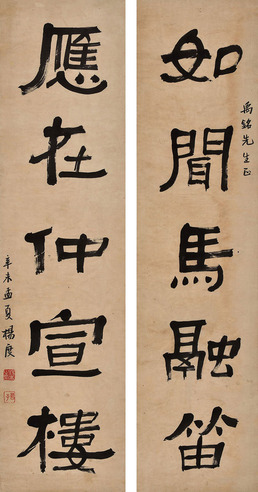 如聞馬融笛
禹銘先生正
應在仲宣樓
辛未孟夏楊度